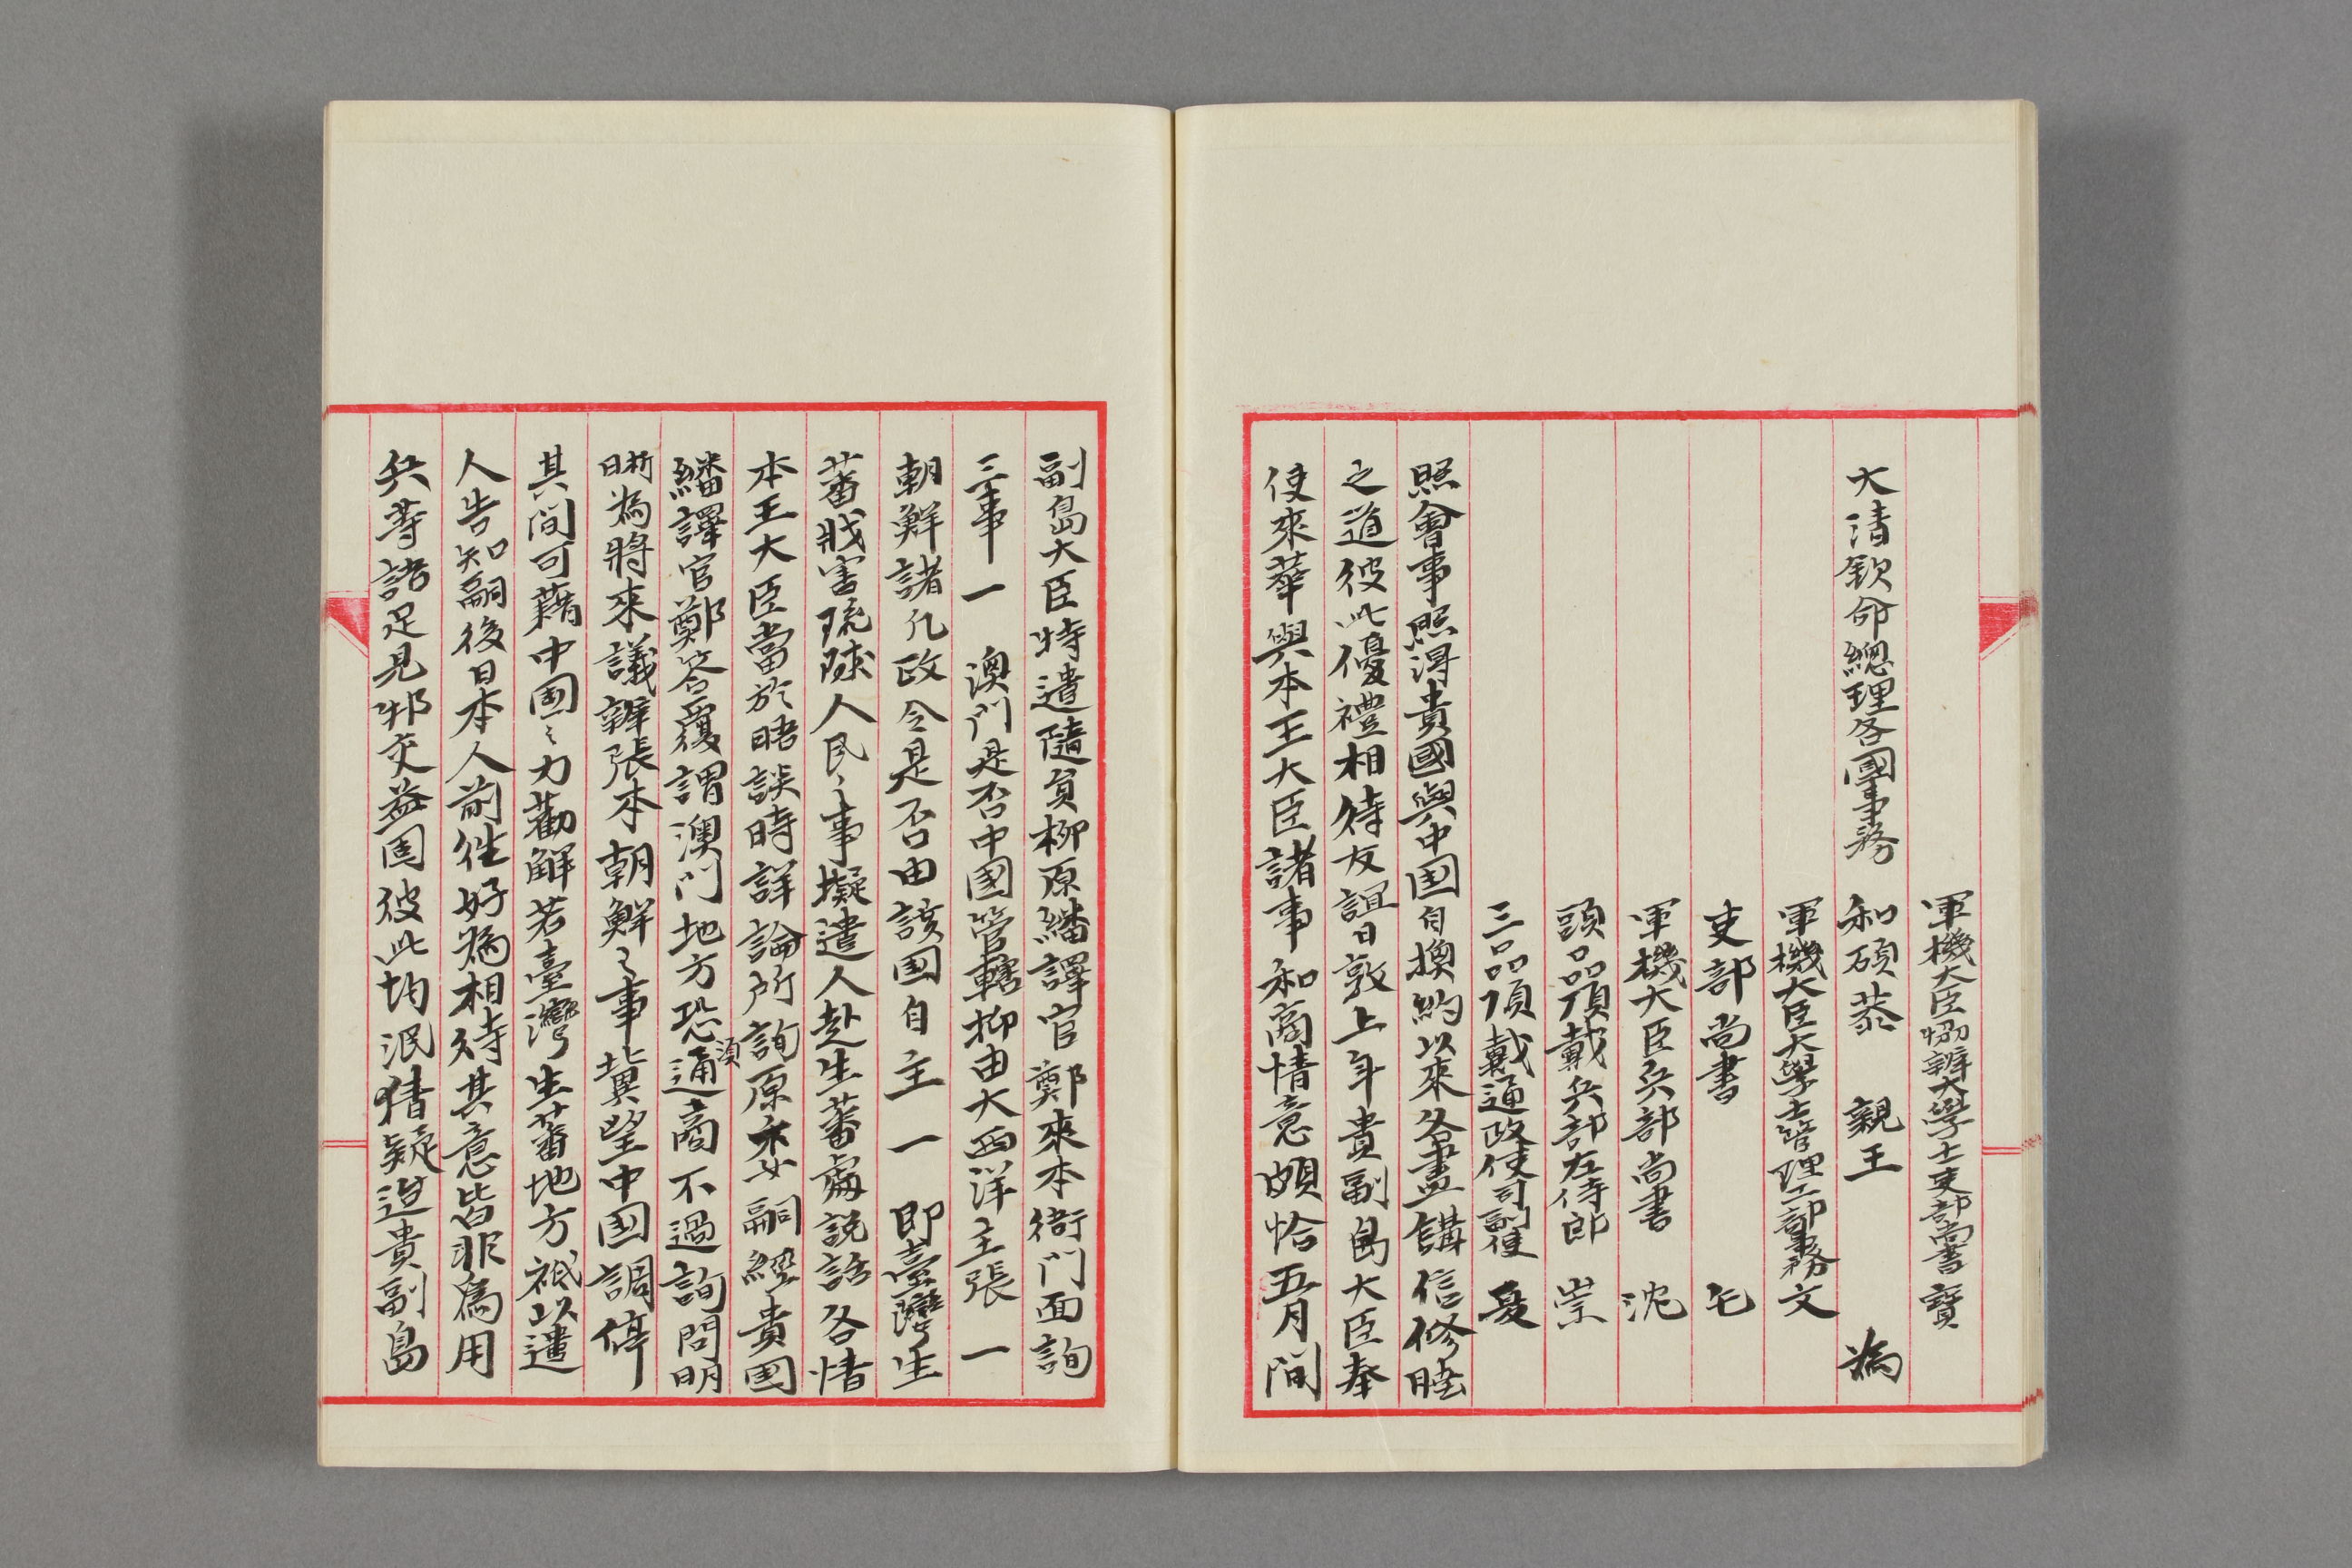 軍機大臣協辦大學士吏部尚書 寶
大清欽命總理各國事務 和碩恭 親王 為
軍機大臣大學士管理工部事務 文
吏部尚書 毛
軍機大臣兵部尚書 沈
頭品頂戴兵部左侍郎 崇
三品頂戴通政使司副使 夏
照會事照得貴國與中国自換約以來各盡講信修睦
之道彼此優禮相待友誼日敦上年貴副島大臣奉
使來華與本王大臣諸事和商情意頗恰五月間
副島大臣特遣隨員柳原繙譯官鄭來本衙門面詢
三事一 澳門是否中國管轄抑由大西洋主張 一
朝鮮諸凡政令是否由該国自主 一 即臺灣生
蕃戕害琉球人民之事擬遣人赴生蕃處說話各情
本王大臣當於晤談時詳論所詢原委嗣經貴国
繙譯官鄭答覆謂澳門地方恐須通商不過詢問明
晰為將來議辦張本朝鮮之事冀望中国調停
其間可藉中国之力勸解若臺灣生蕃地方祗以遣
人告知嗣後日本人前往好為相待其意皆非為用
兵等語足見邦交益固彼此均泯猜疑迨貴副島